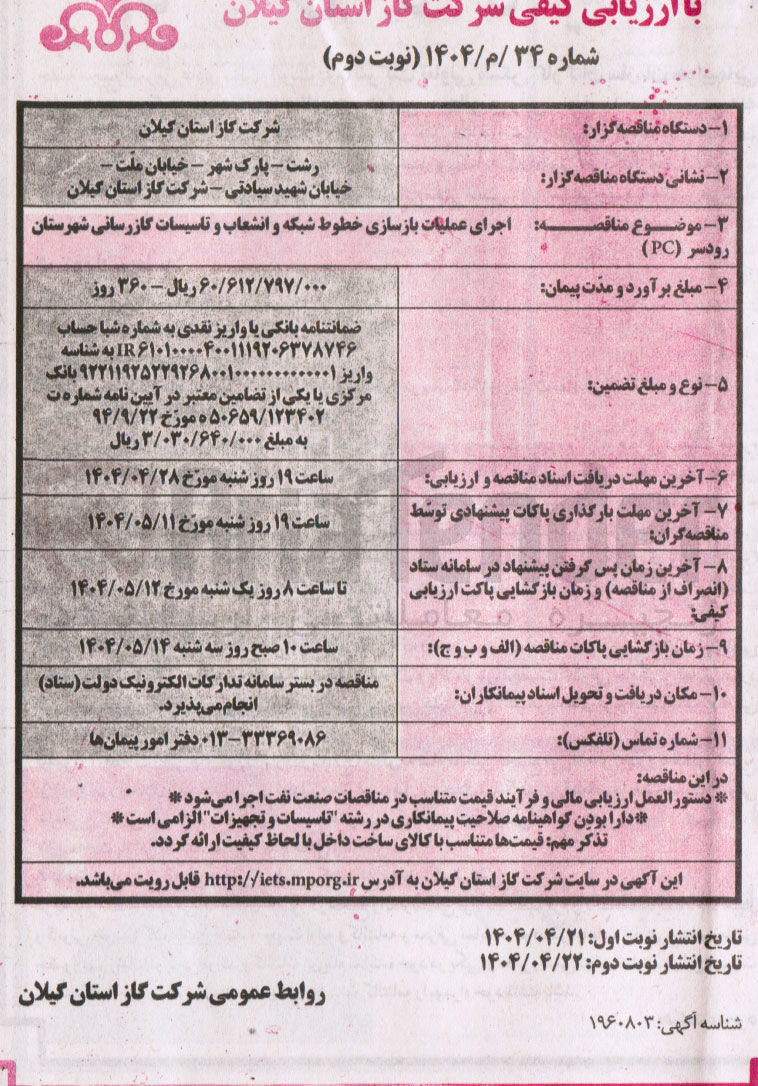 با ارزیابی کیفی شرکت گاز استان گیلان
شماره ۳۴ /م/۱۴۰۴ (نوبت دوم)
۱- دستگاه مناقصه‌گزار:
شرکت گاز استان گیلان
۲- نشانی دستگاه مناقصه‌گزار:
رشت – پارک شهر – خیابان ملّت –
خیابان شهید سیادتی – شرکت گاز استان گیلان
۳- موضوع مناقصه: اجرای عملیات بازسازی خطوط شبکه و انشعاب و تاسیسات گازرسانی شهرستان
رودسر (PC)
۴- مبلغ برآورد و مدّت پیمان:
۶۰/۶۱۲/۷۹۷/۰۰۰ ریال – ۳۶۰ روز
۵- نوع و مبلغ تضمین:
ضمانتنامه بانکی یا واریز نقدی به شماره شبا حساب
IR۶۱۰۱۰۰۰۰۴۰۰۱۱۱۹۲۰۶۳۷۸۷۴۶ به شناسه
واریز ۹۲۲۱۱۹۲۵۲۲۹۲۶۸۰۰۱۰۰۰۰۰۰۰۰۰۰۰۰۱ بانک
مرکزی یا یکی از تضامین معتبر در آیین نامه شماره ت
۵۰۶۵۹/۱۲۳۴۰۲ ه مورّخ ۹۴/۹/۲۲
به مبلغ ۳/۰۳۰/۶۴۰/۰۰۰ ریال
۶- آخرین مهلت دریافت اسناد مناقصه و ارزیابی:
ساعت ۱۹ روز شنبه مورّخ ۱۴۰۴/۰۴/۲۸
۷- آخرین مهلت بارگذاری پاکات پیشنهادی توسّط
مناقصه‌گران:
ساعت ۱۹ روز شنبه مورّخ ۱۴۰۴/۰۵/۱۱
۸- آخرین زمان پس گرفتن پیشنهاد در سامانه ستاد
(انصراف از مناقصه) و زمان بازگشایی پاکت ارزیابی
کیفی:
تا ساعت ۸ روز یک شنبه مورخ ۱۴۰۴/۰۵/۱۲
۹- زمان بازگشایی پاکات مناقصه (الف و ب و ج):
ساعت ۱۰ صبح روز سه شنبه ۱۴۰۴/۰۵/۱۴
۱۰- مکان دریافت و تحویل اسناد پیمانکاران:
مناقصه در بستر سامانه تدارکات الکترونیک دولت (ستاد)
انجام می‌پذیرد.
۱۱- شماره تماس (تلفکس):
۰۱۳-۳۳۳۶۹۰۸۶ دفتر امور پیمان‌ها
در این مناقصه:
* دستورالعمل ارزیابی مالی و فرآیند قیمت متناسب در مناقصات صنعت نفت اجرا می‌شود *
*دارا بودن گواهینامه صلاحیت پیمانکاری در رشته "تاسیسات و تجهیزات" الزامی است *
تذکر مهم: قیمت‌ها متناسب با کالای ساخت داخل با لحاظ کیفیت ارائه گردد.
این آگهی در سایت شرکت گاز استان گیلان به آدرس http://iets.mporg.ir قابل رویت می‌باشد.
تاریخ انتشار نوبت اول: ۱۴۰۴/۰۴/۲۱
تاریخ انتشار نوبت دوم: ۱۴۰۴/۰۴/۲۲
روابط عمومی شرکت گاز استان گیلان
شناسه آگهی: ۱۹۶۰۸۰۳